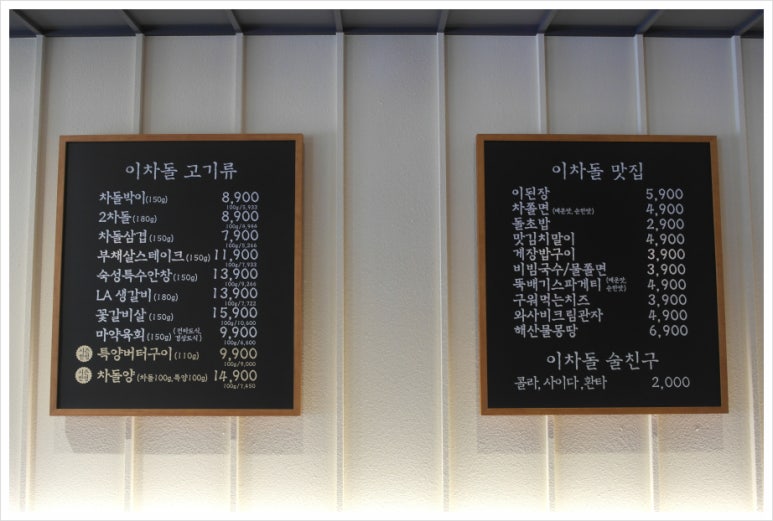 이차돌 고기류
차돌박이(150g) 8,900
100g/5,933
2차돌(180g) 8,900
100g/4,944
차돌삼겹(150g) 7,900
100g/5,266
부채살스테이크(150g) 11,900
100g/7,933
숙성특수안창(150g) 13,900
100g/9,266
LA 생갈비(180g) 13,900
100g/7,722
꽃갈비살(150g) 15,900
100g/10,600
마약육회(150g) (전라도식, 경상도식) 9,900
100g/6,600
특양버터구이(110g) 9,900
100g/9,000
차돌양(차돌100g,특양100g) 14,900
100g/7,450
이차돌 맛집
이된장 5,900
차쫄면(매운맛, 순한맛) 4,900
돌초밥 2,900
맛김치말이 4,900
게장밥구이 3,900
비빔국수/물쫄면 3,900
뚝배기스파게티(매운맛, 순한맛) 4,900
구워먹는치즈 3,900
와사비크림관자 4,900
해산물몽땅 6,900
이차돌 술친구
콜라, 사이다, 환타 2,000